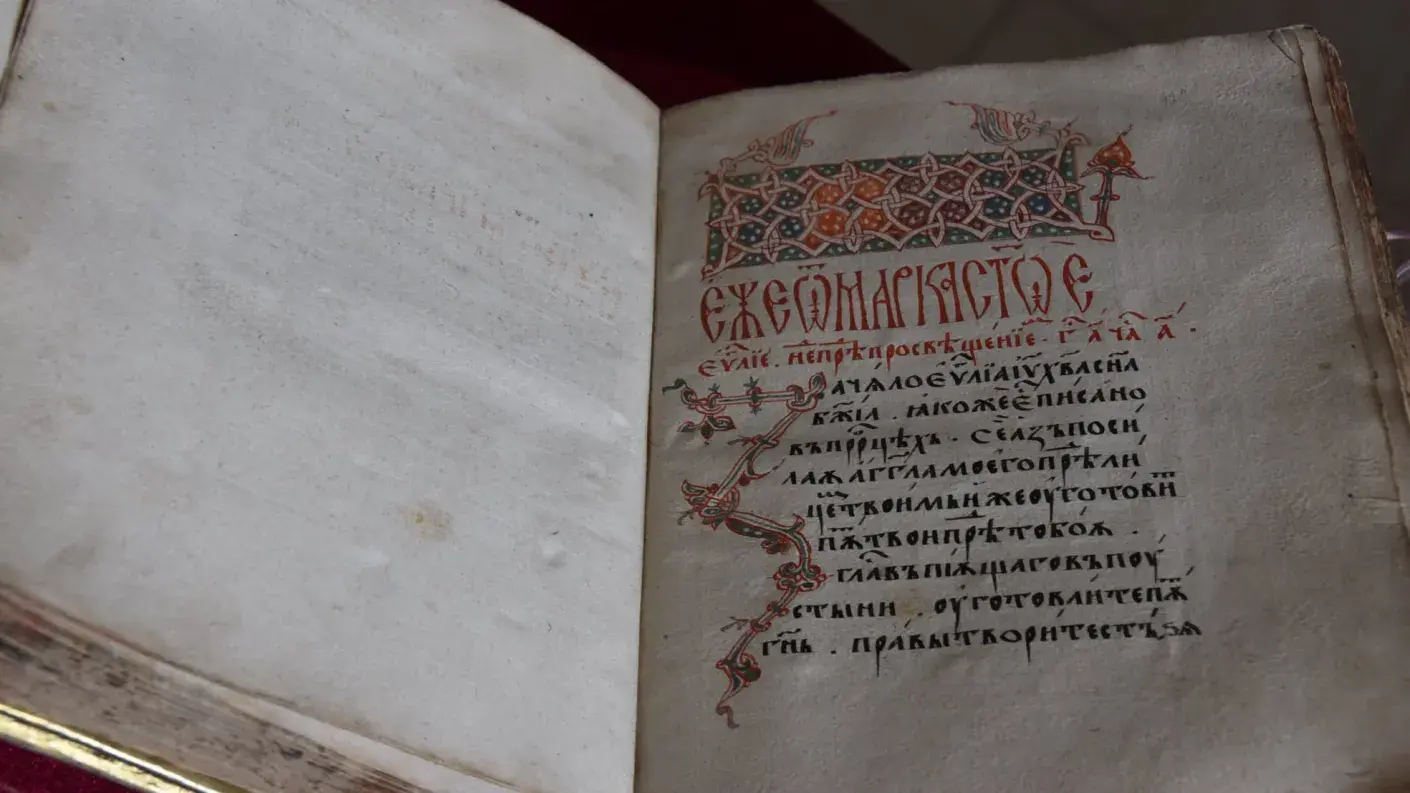 Є҆ЖЕѾМАРКАСТ҃ОЕ
ЕѴ҃ЛІЕ. НЕПРѢ҃ПРОСВѢЩЕНІЕ· Г҃Л А҃ ЧА҃ А҃·
АЧѦЛОЕѴ҃ЛІАІѴ҃Х҃ВАСН҃А
Б҃ЖІА. ꙖКОЖЕЕ҆ПИСАНО
ВЪПРРѺ҃ЦѢХЪ. СЕАЗЪПОСИ
ЛАѪАГГ҃ЛАМОЕГОПРѢ҃ЛИ
ЦЕ҃МТВОИМЬИЖЕОУГОТОВИ҃Т
ПѪ҃ТВОИПРѢ҃ТОБОѪ.
ГЛА҃ВЪПІѪЩАГОВЪПОУ
СТЫНИ. ОУГОТОВАИТЕПѪ҃
Г҃НЬ. ПРАВЫТВОРИТЕСТЪЅѦ